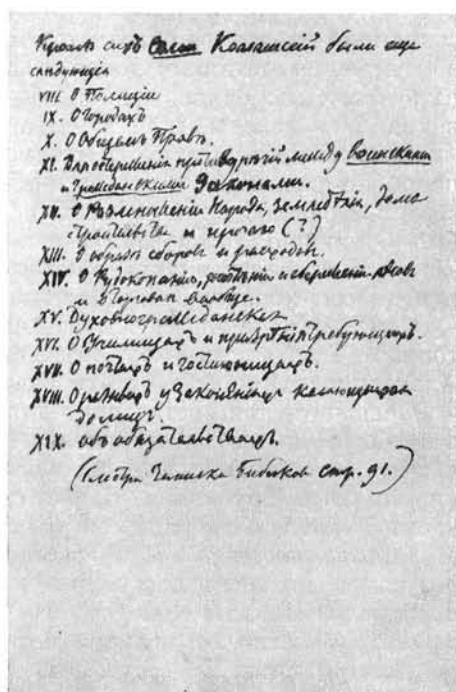 Кромѣ сихъ семи Коммиссій были еще
слѣдующія
VIII. О Полиціи
IX. О городахъ
X. О Общемъ Правѣ.
XI. предостереженія противурѣчій между воинскими
и Гражданскими Законами.
XII. О Размноженіи Народа, Земледѣлія, домо
строительства и прочаго (?)
XIII. О образѣ сборовъ и расходовъ.
XIV. О Рудокопаніи, растѣніи и сбереженіи лѣсовъ
и о торговлѣ вообще.
XV. Духовногражданская
XVI. О Училищахъ и призрѣнія требующихъ.
XVII. О почтахъ и гостинницахъ.
XVIII. О разборѣ узаконеній касающихся
до лицъ.
XIX. объ обязательствахъ.
( Записки Бибикова стр. 91.)